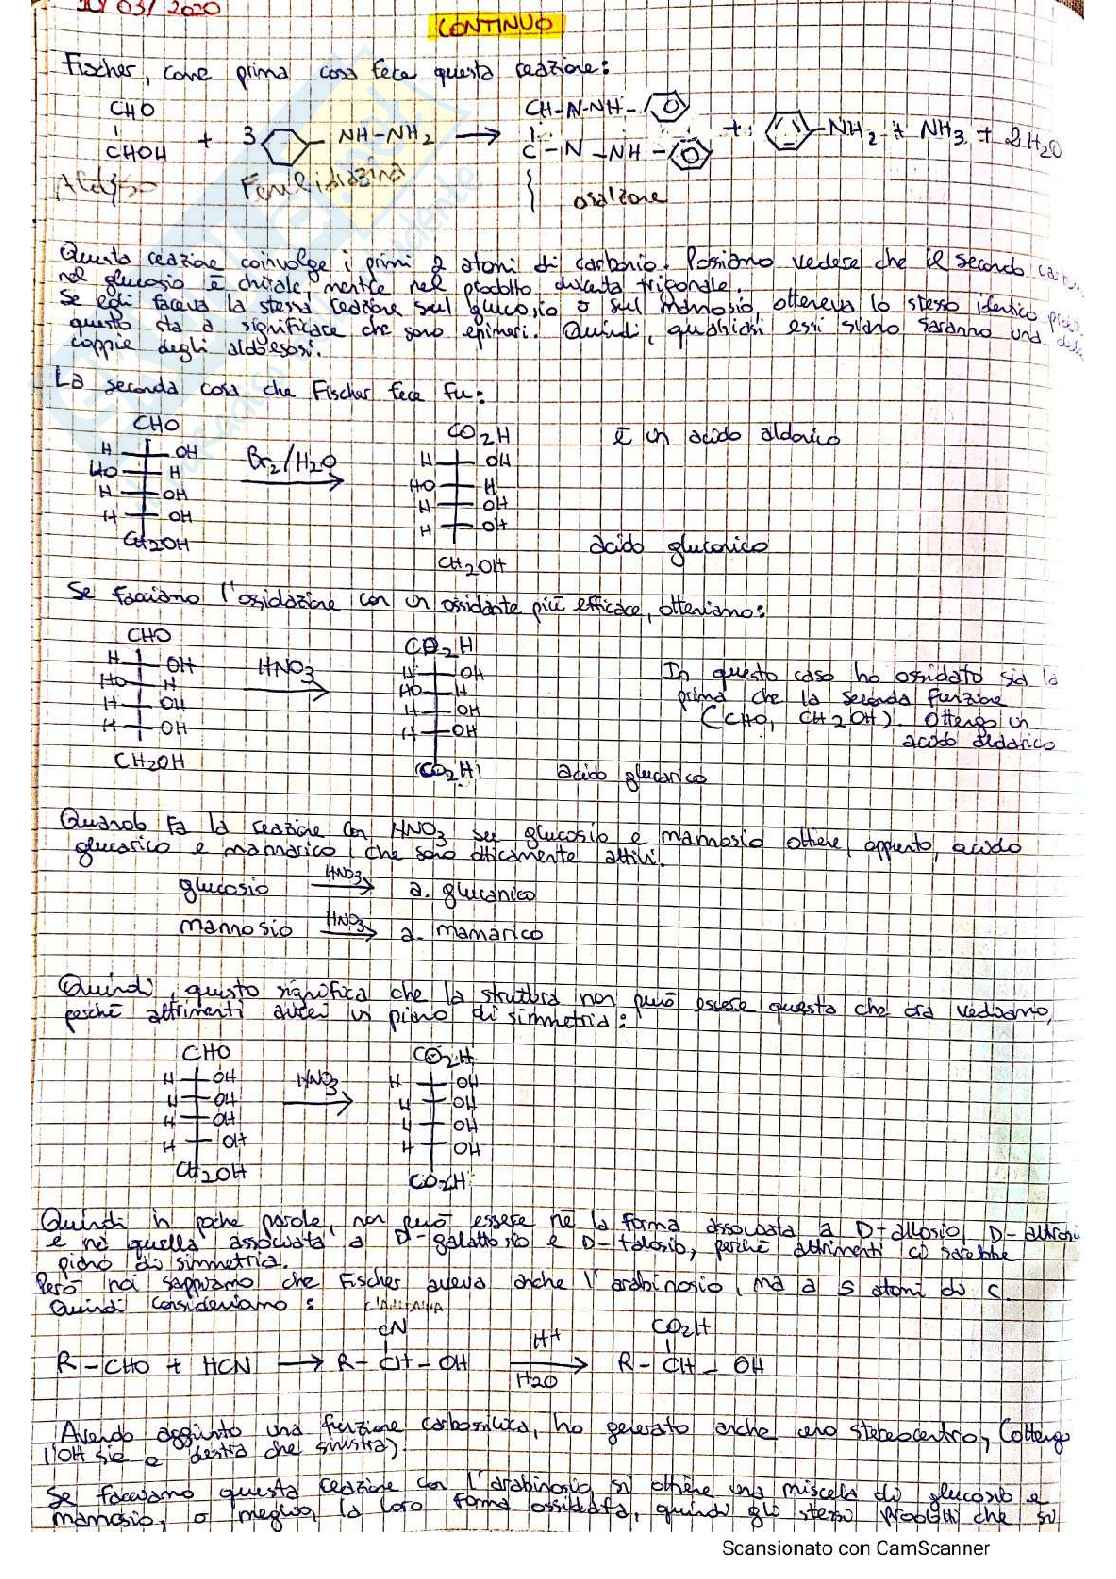 03/2020
CONTINUO
Fischer, come prima cosa fece questa reazione:
CHO
CHOH
+ 3 NH-NH2 → CH-N-NH- C-N-NH- + -NH2 + NH3 + 2H2O
Fenilidrazina
Questa reazione coinvolge i primi 2 atomi di carbonio. Possiamo vedere che il secondo
nel glucosio è chirale, mentre nel prodotto diventa trigonale.
Se egli faceva la stessa reazione sul glucosio o sul mannosio, otteneva lo stesso identico
questo sta a significare che sono epimeri. Quindi, qualsiasi essi siano saranno una delle
coppie degli aldoesosi.
La seconda cosa che Fischer fece fu:
CHO CO2H è un acido aldonico
H OH Br2/H2O H OH
HO H HO H
H OH H OH
H OH H OH
CH2OH CH2OH acido gluconico
Se facciamo l'ossidazione con un ossidante più efficace, otteniamo:
CHO CO2H
H OH HNO3 H OH In questo caso ho ossidato sia la
HO H HO H prima che la seconda funzione
H OH H OH (CHO, CH2OH). Ottengo un
H OH H OH acido aldarico
CH2OH (CO2H) acido glucarico
Quando fa la reazione con HNO3 su glucosio e mannosio ottiene, appunto, acido
glucarico e mannarico, che sono otticamente attivi.
glucosio HNO3 → a. glucarico
mannosio HNO3 → a. mannarico
Quindi, questo significa che la struttura non può essere questa che ora vediamo,
perchè altrimenti avrei un piano di simmetria:
CHO CO2H
H OH HNO3 H OH
H OH H OH
H OH H OH
H OH H OH
CH2OH CO2H
Quindi in poche parole, non può essere nè la forma associata a D-allosio, D-altrosio
e nè quella associata a D-galattosio e D-talosio, perchè altrimenti ci sarebbe
piano di simmetria.
Però noi sappiamo che Fischer aveva anche l'arabinosio, ma a 5 atomi di C.
Quindi consideriamo:
CN CO2H
R-CHO + HCN → R-CH-OH H+ H2O → R-CH-OH
Avendo aggiunto una funzione carbossilica, ho generato anche uno stereocentro, (ottengo
l'OH sia a destra che sinistra).
Se facciamo questa reazione con l'arabinosio, si ottiene una miscela di glucosio e
mannosio, o meglio, la loro forma ossidata, quindi gli stessi prodotti che si
Scansionato con CamScanner